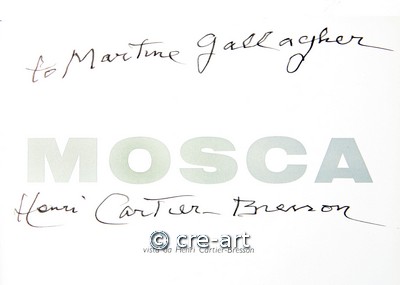 to Martine Gallagher
MOSCA
Henri Cartier-Bresson
vista da Henri Cartier-Bresson
© cre-art